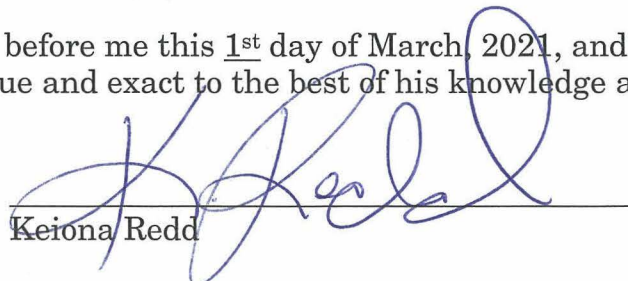 before me this 1st day of March, 2021, and
ue and exact to the best of his knowledge a
K Redd
Keiona Redd